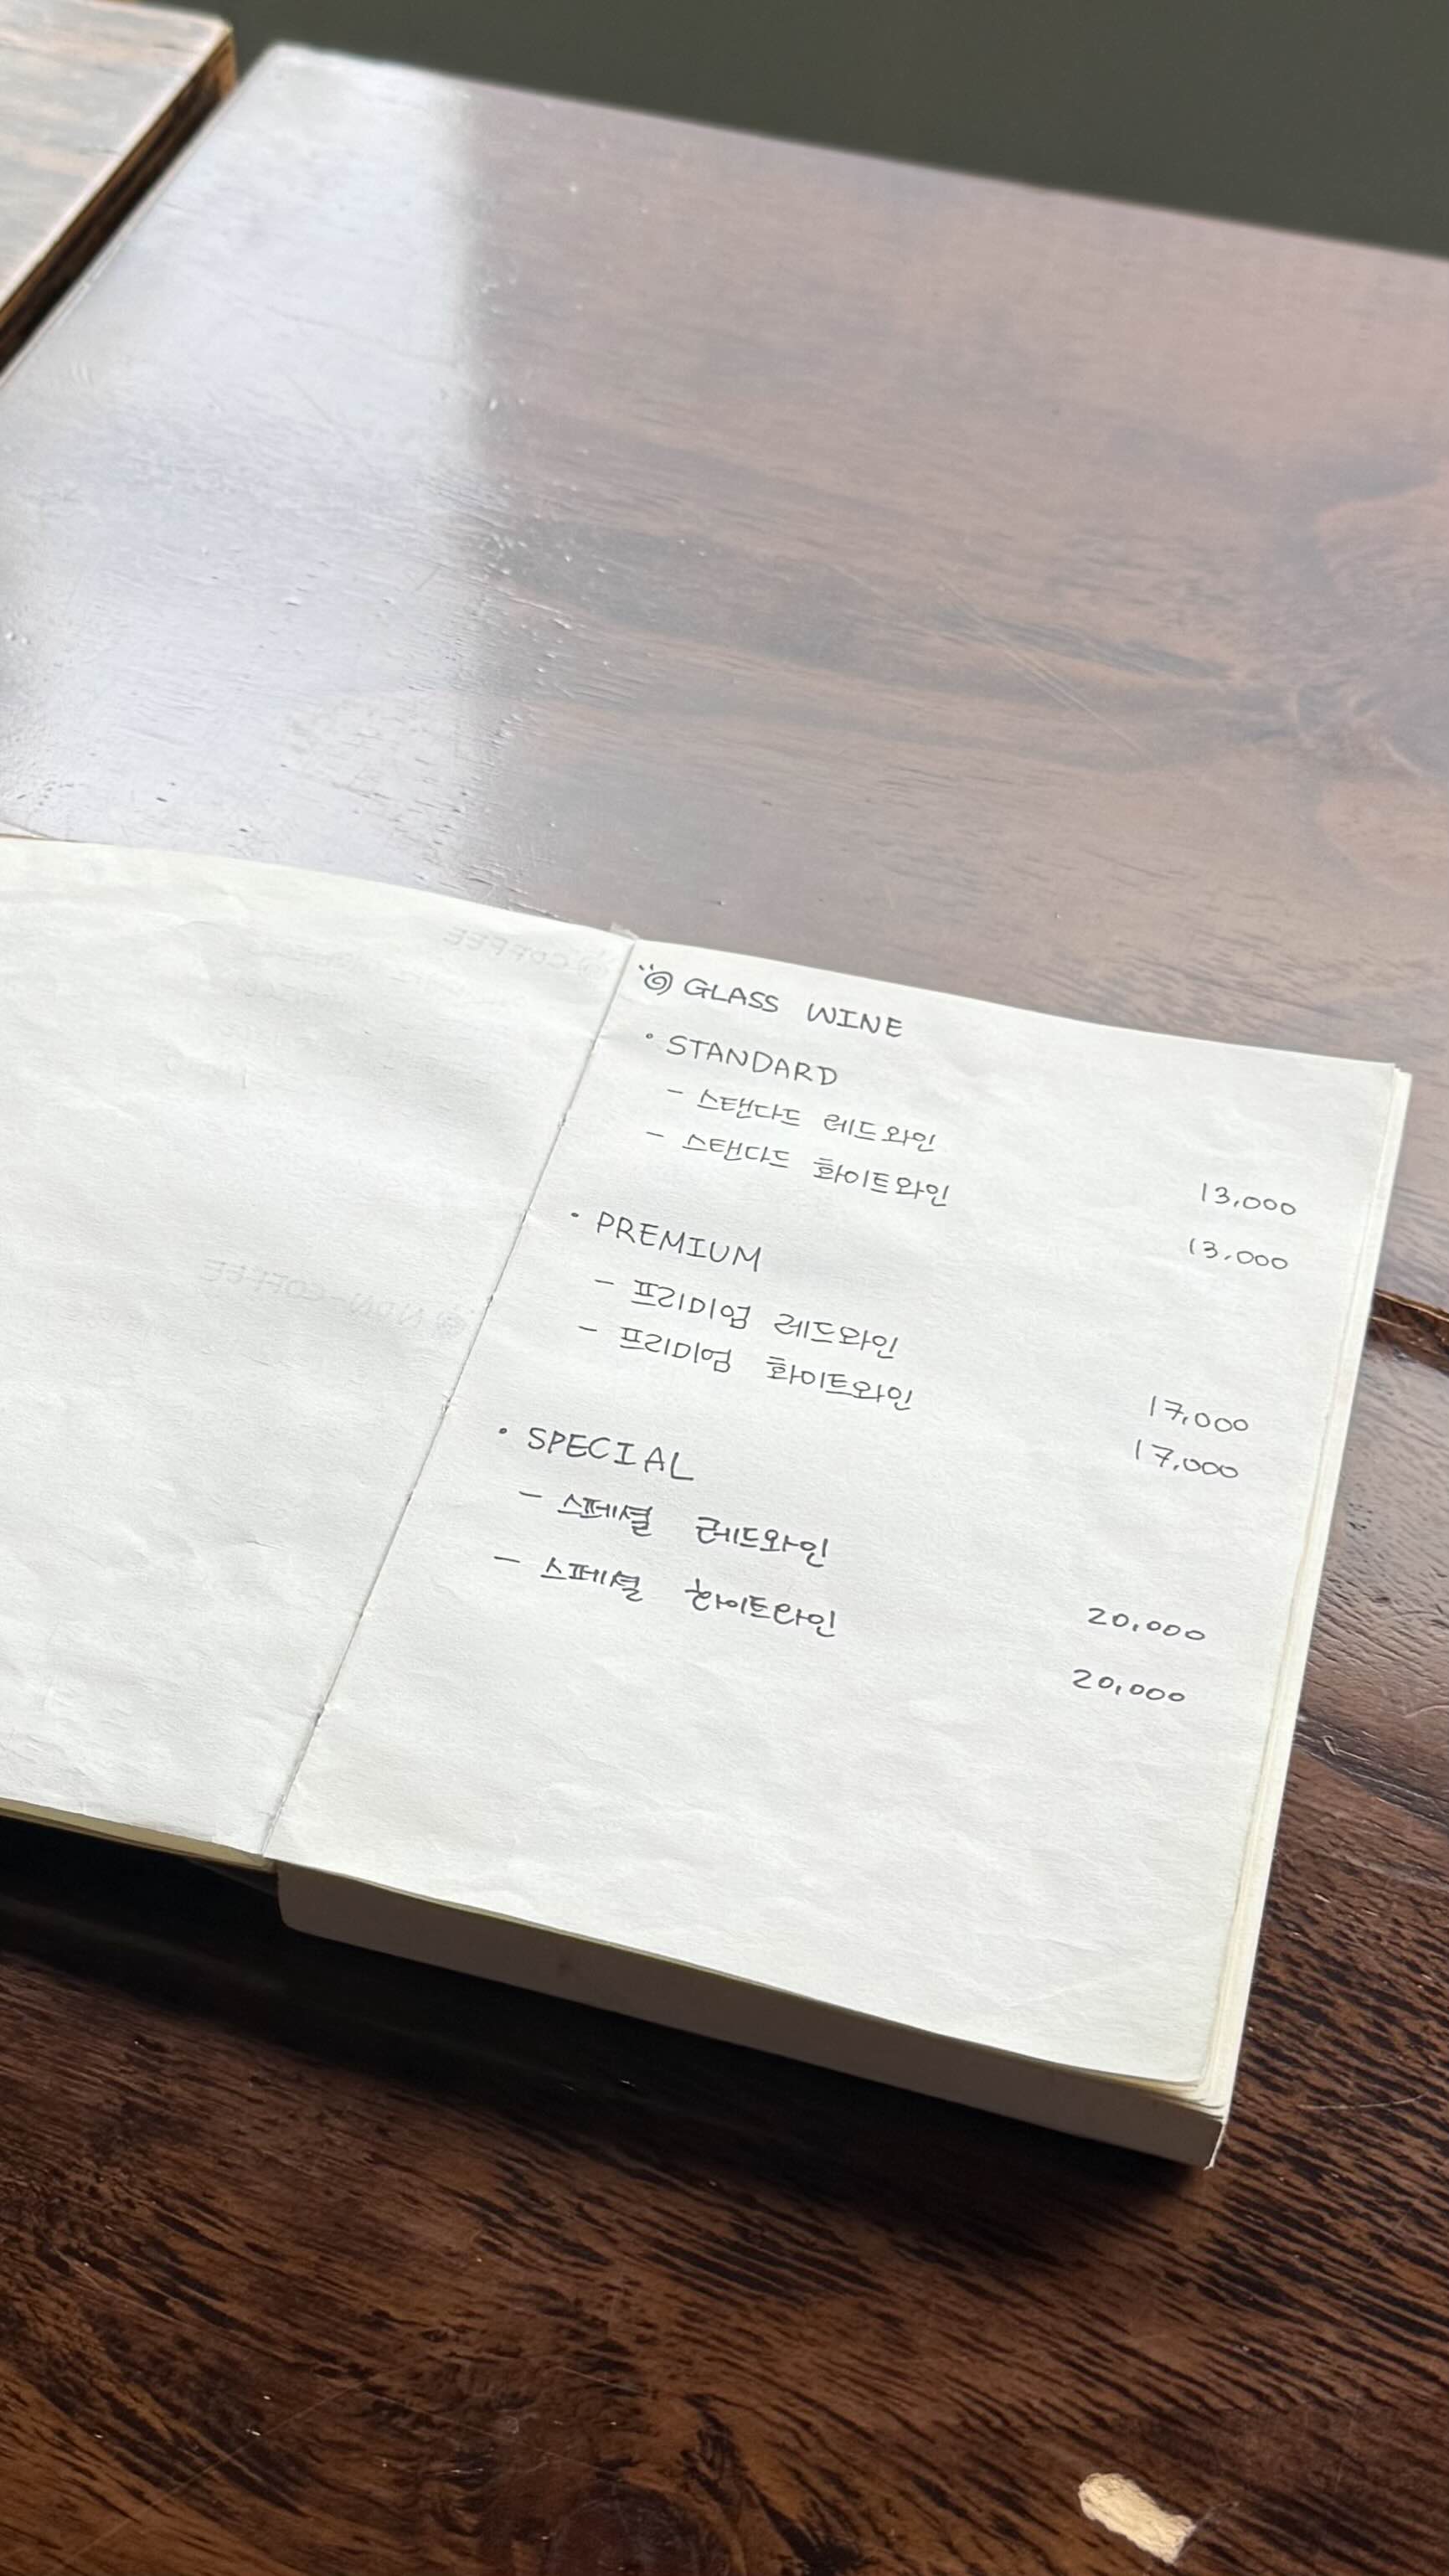 GLASS WINE
• STANDARD
- 스탠다드 레드와인 13,000
- 스탠다드 화이트와인 13,000
• PREMIUM
- 프리미엄 레드와인 17,000
- 프리미엄 화이트와인 17,000
• SPECIAL
- 스페셜 레드와인 20,000
- 스페셜 화이트와인 20,000
COFFEE
NON-COFFEE